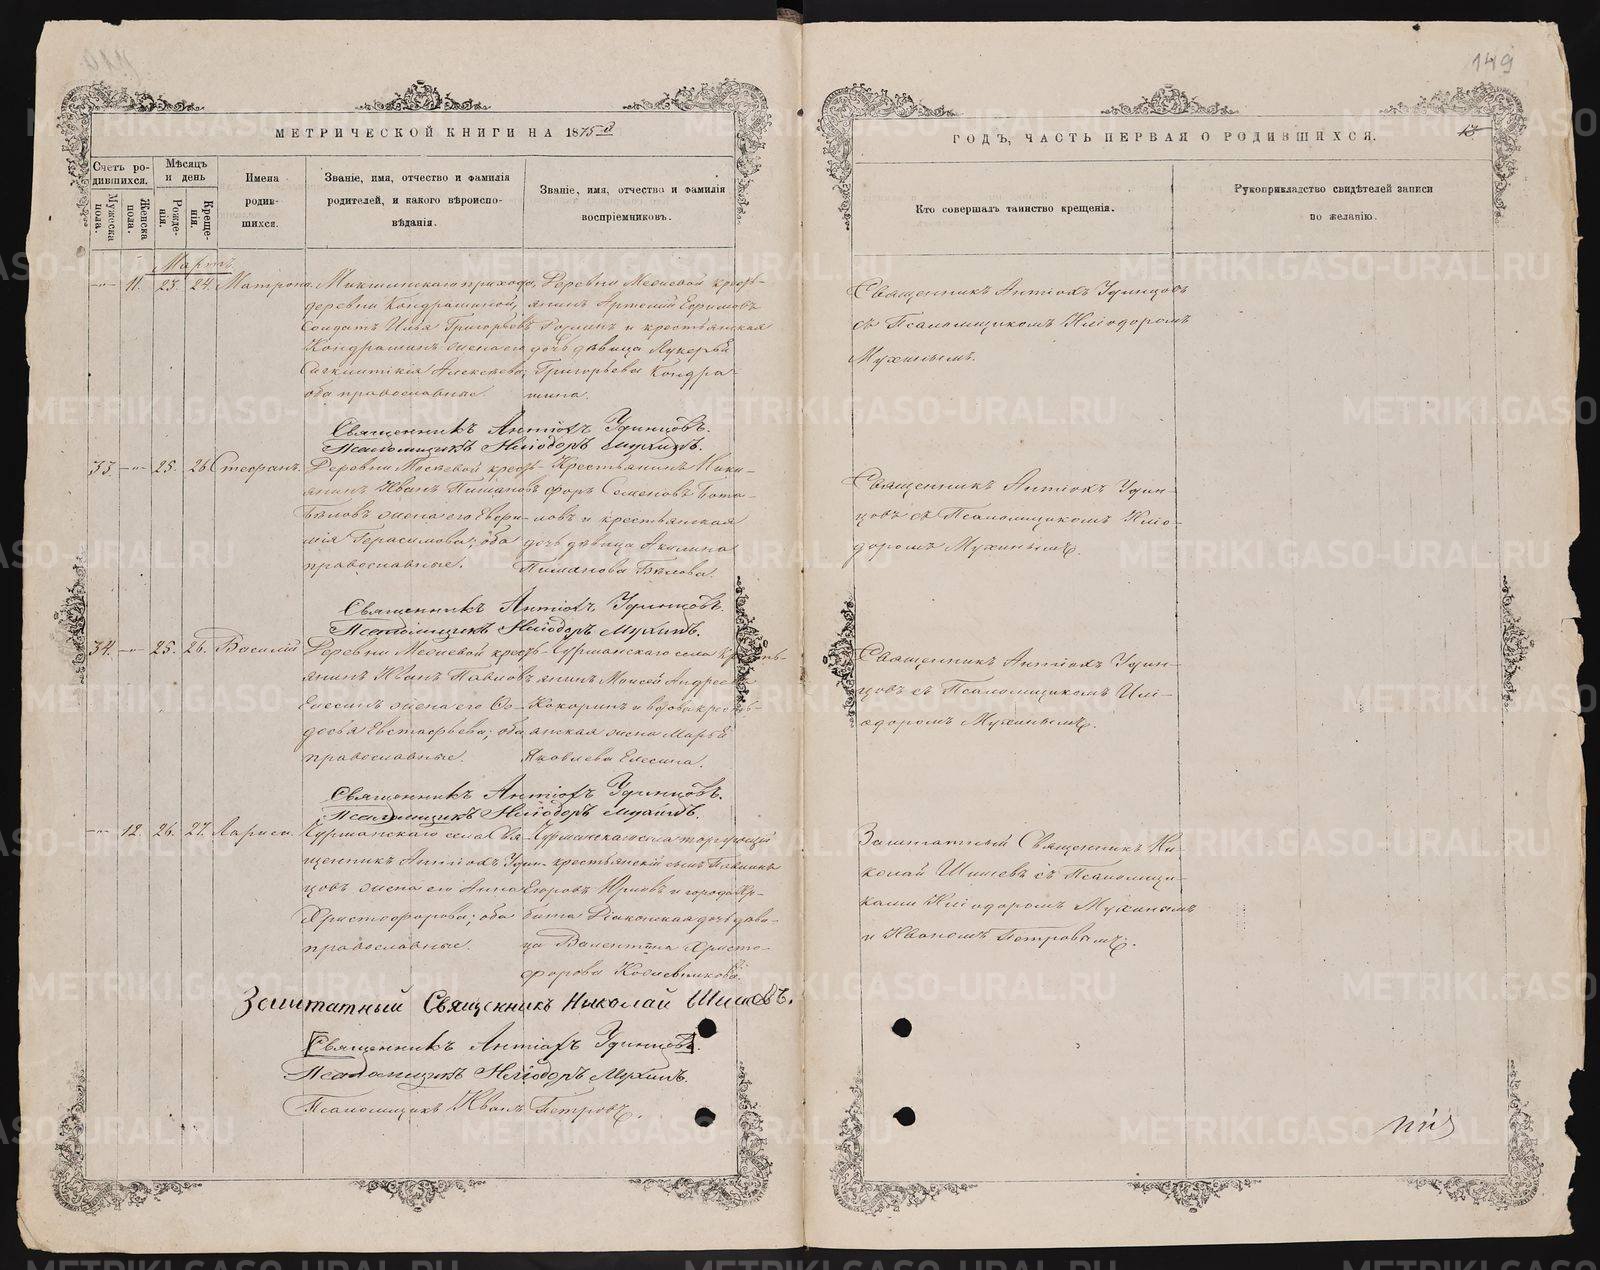 149
МЕТРИЧЕСКОЙ КНИГИ НА 1875й
ГОДЪ, ЧАСТЬ ПЕРВАЯ О РОДИВШИХСЯ.
Счетъ родившихся.
Мужеска пола.
Женска пола.
Мѣсяцъ и день
Рожденія.
Крещенія.
Имена
родив-
шихся.
Званіе, имя, отчество и фамилія
родителей, и какого вѣроиспо-
вѣданія.
Званіе, имя, отчество и фамилія
воспріемниковъ.
Кто совершалъ таинство крещенія.
Рукоприкладство свидѣтелей записи
по желанію.
Мартъ
11. 23. 24. Матрона.
прихода
деревни Кондрашиной,
Солдатъ Илья Григорьевъ
Кондрашинъ жена его
Алексѣева;
оба православные.
Деревни кресть-
янинъ Артемій Ефримовъ
и крестьянская
дочь дѣвица Лукерья
Григорьева Кондра-
шина.
Священникъ Антіохъ Удинцовъ
съ Псаломщикомъ Иліодоромъ
Мухинымъ.
Священникъ Антіохъ Удинцовъ.
Псаломщикъ Иліодоръ Мухинъ.
33. 25. 26 Стефанъ.
Деревни кресть-
янинъ Иванъ Пимановъ
Бѣловъ жена его Евфи-
мія Герасимова; оба
православные.
Крестьянинъ Ники-
форъ Семеновъ
и крестьянская
дочь дѣвица Акилина
Пиманова Бѣлова.
Священникъ Антіохъ Удин-
цовъ съ Псаломщикомъ Иліо-
доромъ Мухинымъ.
Священникъ Антіохъ Удинцовъ.
Псаломщикъ Иліодоръ Мухинъ.
34. 25. 26. Василій
Деревни кресть-
янинъ Иванъ Павловъ
Елесинъ жена его Ѳе-
досья Евстафьева; оба
православные.
села кресть-
янинъ Моисей Андреевъ
Кокоринъ и вдова кресть-
янская жена Марья
Яковлева Елесина.
Священникъ Антіохъ Удин-
цовъ съ Псаломщикомъ Илі-
одоромъ Мухинымъ.
Священникъ Антіохъ Удинцовъ.
Псаломщикъ Иліодоръ Мухинъ.
12. 26. 27. Лариса.
села Свя-
щенникъ Антіохъ Удин-
цовъ жена его Анна
Христофорова; оба
православные.
села торгующій
крестьянскій сынъ Павелъ
Егоровъ Юрьевъ и города Ир-
бита Діаконская дочь дѣви-
ца Валентина Христо-
форова
Заштатный Священникъ Ни-
колай Шишевъ съ Псаломщи-
ками Иліодоромъ Мухинымъ
и Иваномъ Петровымъ.
Заштатный Священникъ Николай Шишевъ.
Священникъ Антіохъ Удинцовъ.
Псаломщикъ Иліодоръ Мухинъ.
Псаломщикъ Иванъ Петровъ.
METRIKI.GASO-URAL.RU